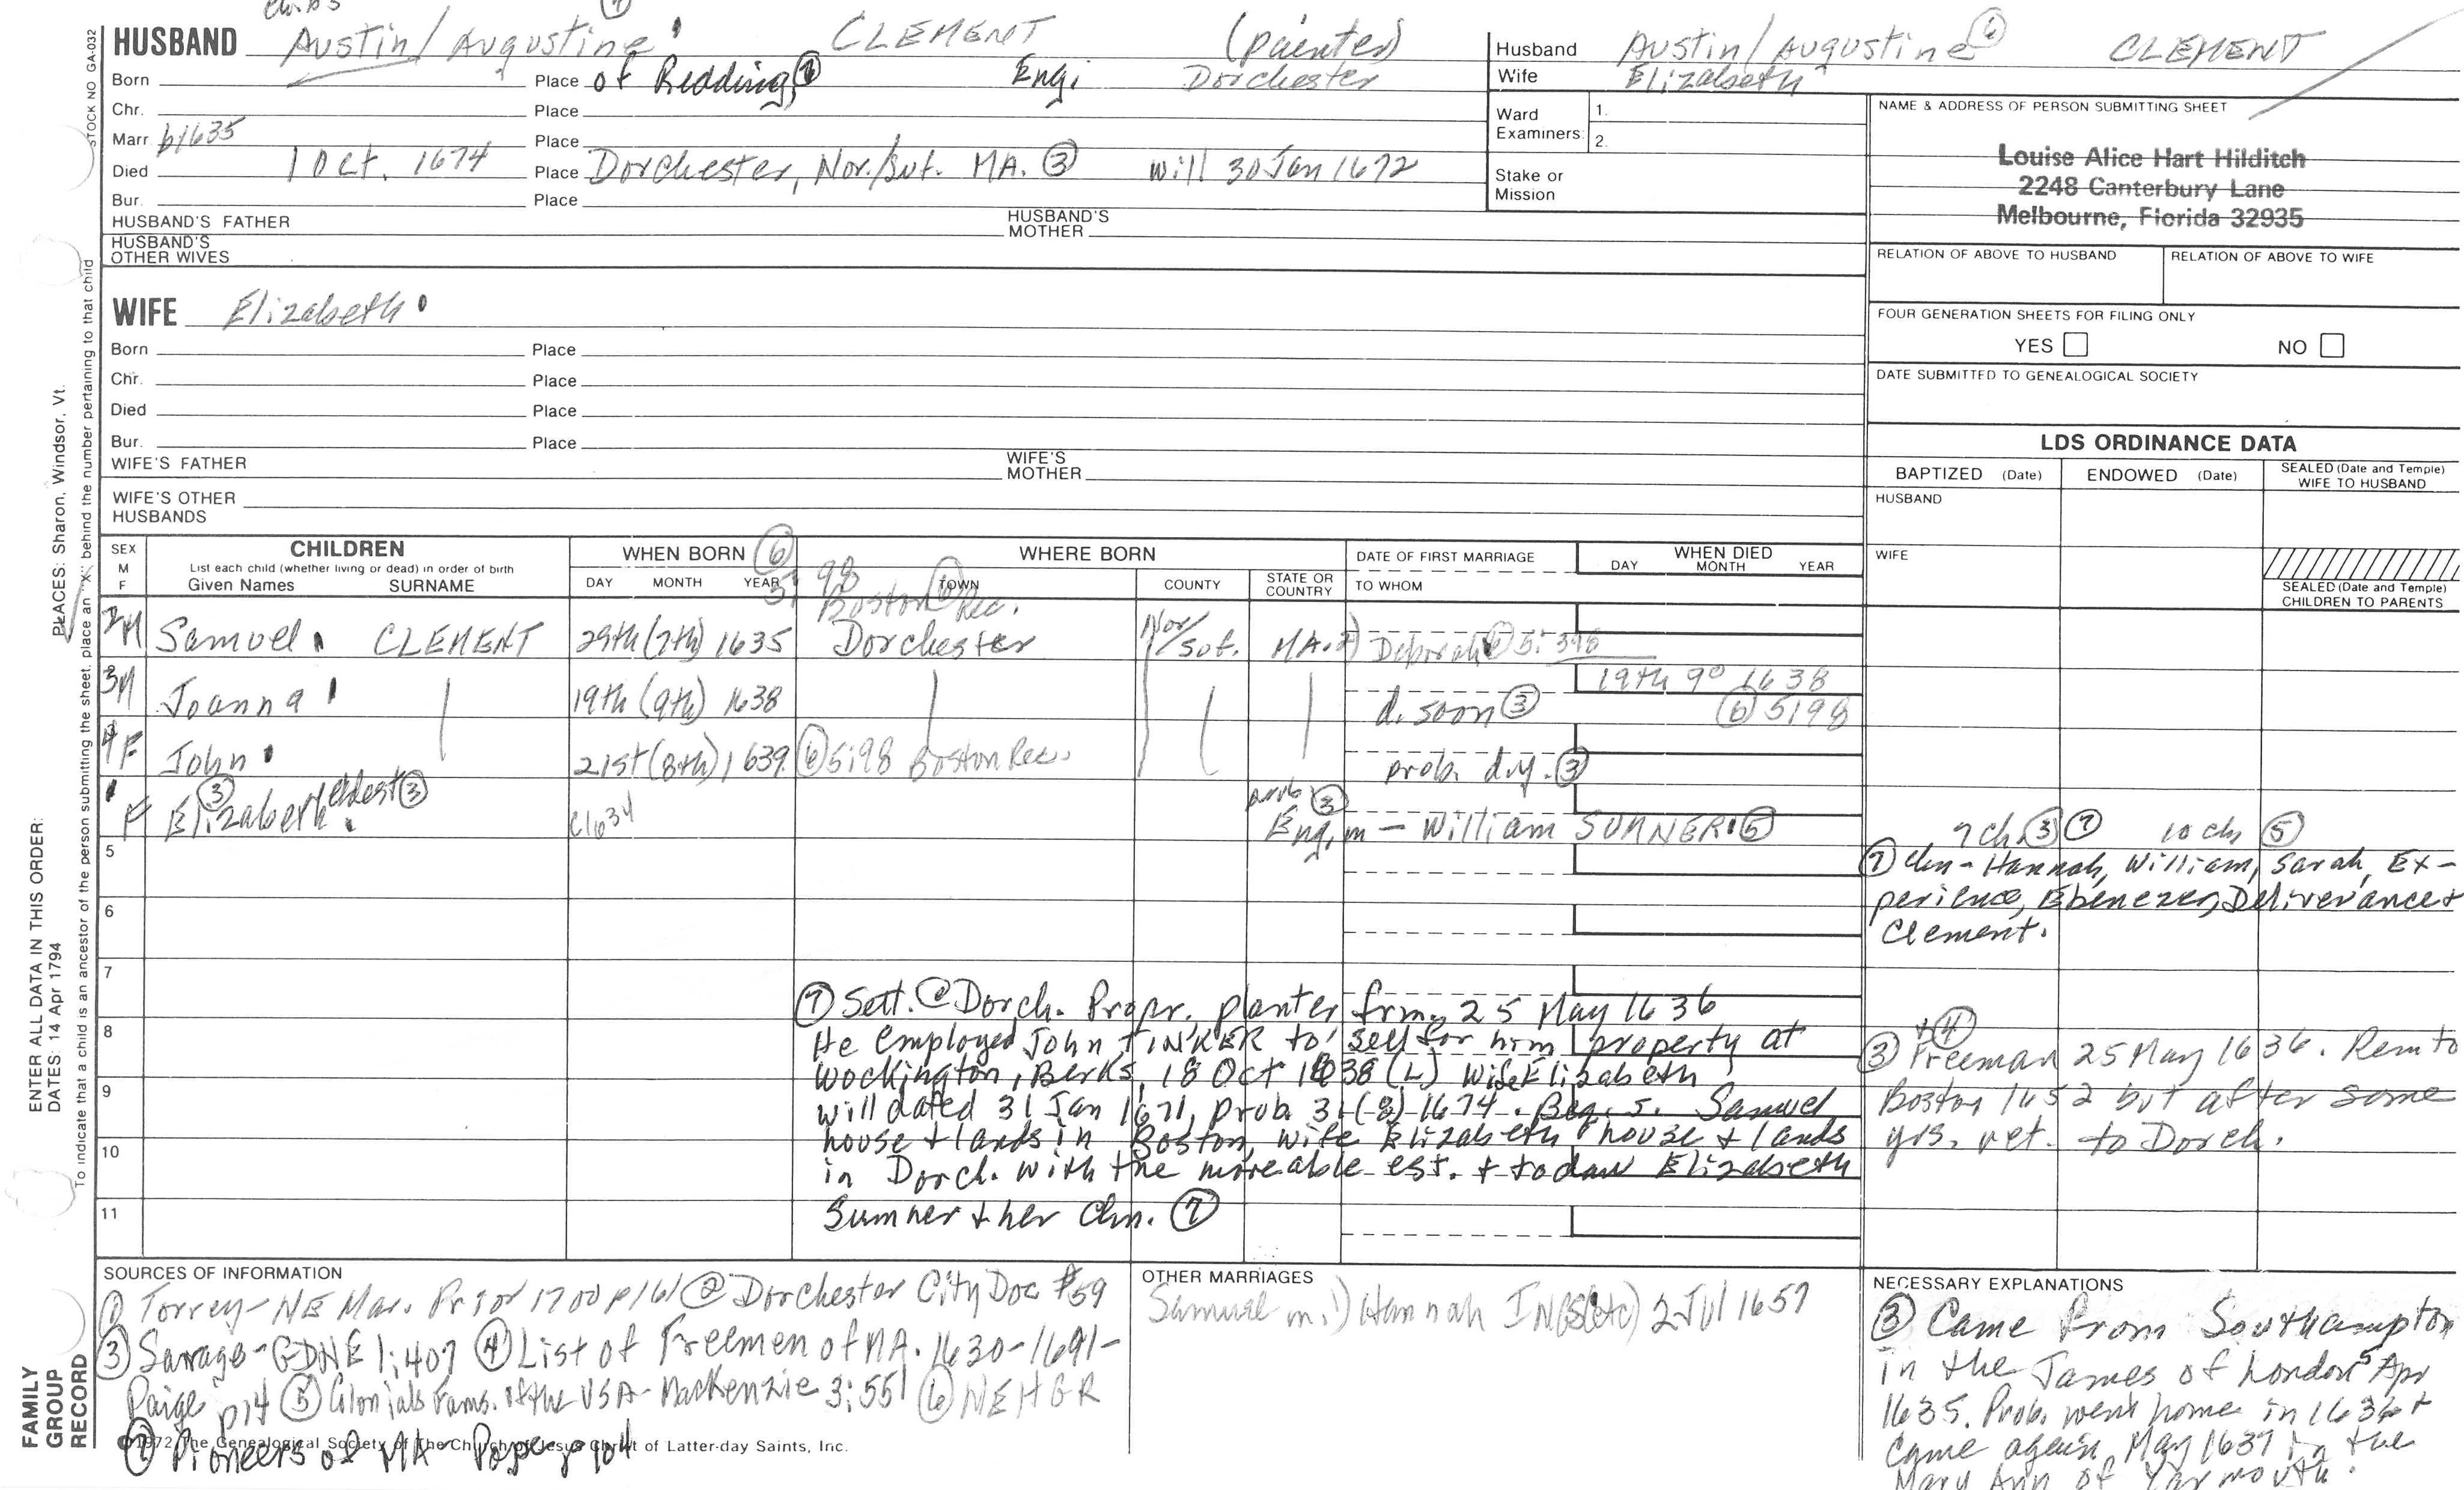 HUSBAND Austin/Augustine CLEMENT (painter)
Born Place of Redding, ⑦ Eng. Dorchester
Chr. Place
Marr. b1635 Place
Died 1 Oct. 1674 Place Dorchester, Nor./Suf. MA. ③ will 30 Jan 1672
Bur. Place
HUSBAND'S FATHER HUSBAND'S MOTHER
HUSBAND'S OTHER WIVES
WIFE Elizabeth
Born Place
Chr. Place
Died Place
Bur. Place
WIFE'S FATHER WIFE'S MOTHER
WIFE'S OTHER HUSBANDS
Husband Austin/Augustine ⑥ CLEMENT
Wife Elizabeth
Ward Examiners: 1. 2.
Stake or Mission
NAME & ADDRESS OF PERSON SUBMITTING SHEET
Louise Alice Hart Hilditch
2248 Canterbury Lane
Melbourne, Florida 32935
RELATION OF ABOVE TO HUSBAND RELATION OF ABOVE TO WIFE
FOUR GENERATION SHEETS FOR FILING ONLY
YES NO
DATE SUBMITTED TO GENEALOGICAL SOCIETY
LDS ORDINANCE DATA
BAPTIZED (Date) ENDOWED (Date) SEALED (Date and Temple) WIFE TO HUSBAND
HUSBAND
WIFE
SEALED (Date and Temple) CHILDREN TO PARENTS
SEX M F
CHILDREN
List each child (whether living or dead) in order of birth
Given Names SURNAME
WHEN BORN ⑥
DAY MONTH YEAR 5: 98
WHERE BORN
TOWN COUNTY STATE OR COUNTRY
Boston Rec.
DATE OF FIRST MARRIAGE
TO WHOM
WHEN DIED
DAY MONTH YEAR
2 M Samuel CLEMENT 29th (7th) 1635 Dorchester Nor/Suf. MA. Deborah ⑥ 5:396
3 M Joanna 19th (9th) 1638 d. soon ③ 19th 9º 1638
⑥ 5198
4 F John 21st (8th) 1639 ⑥ 5:98 Boston Rec. prob. d.y. ③
1 F Elizabeth ③ eldest ③ c1634 prob ③ Eng. m - William SUMNER ⑤ 7 ch. ③ ⑦ 10 ch ⑤
5
6
7
8
9
10
11
⑦ chn - Hannah, William, Sarah, Ex-
perience, Ebenezer, Deliverance +
Clement.
⑦ Sett. @ Dorch. Propr. planter frm. 25 May 1636
He employed John TINKER to sell for him property at
Wockington, Berks, 18 Oct 1638 (L) Wife Elizabeth
will dated 31 Jan 1671, prob 31-(8)-1674. Beq. s. Samuel
house + lands in Boston, wife Elizabeth house + lands
in Dorch. with the moveable est. + to dau Elizabeth
Sumner + her chn. ⑦
+ ④
③ Freeman 25 May 1636. Rem to
Boston 1652 but after some
yrs. ret. to Dorch.
SOURCES OF INFORMATION
① Torrey - NE Mar. Prior 1700 p161 ② Dorchester City Doc #59
③ Savage - GDNE 1:407 ④ List of Freemen of MA. 1630-1691-
Paige p14 ⑤ Colonials Fams. of the USA - MacKenzie 3:551 ⑥ NEHGR
©1972 The Genealogical Society of The Church of Jesus Christ of Latter-day Saints, Inc.
⑦ Pioneers of MA - Pope p104
OTHER MARRIAGES
Samuel m. 1) Hannah 2 Jul 1657
NECESSARY EXPLANATIONS
③ Came from Southampton
in the James of London 5 Apr
1635. Prob. went home in 1636 +
came again May 1637 in the
Mary Ann of Yarmouth.
STOCK NO. GA-032
PLACES: Sharon, Windsor, Vt.
To indicate that a child is an ancestor of the person submitting the sheet, place an "X" behind the number pertaining to that child
ENTER ALL DATA IN THIS ORDER:
DATES: 14 Apr 1794
FAMILY
GROUP
RECORD